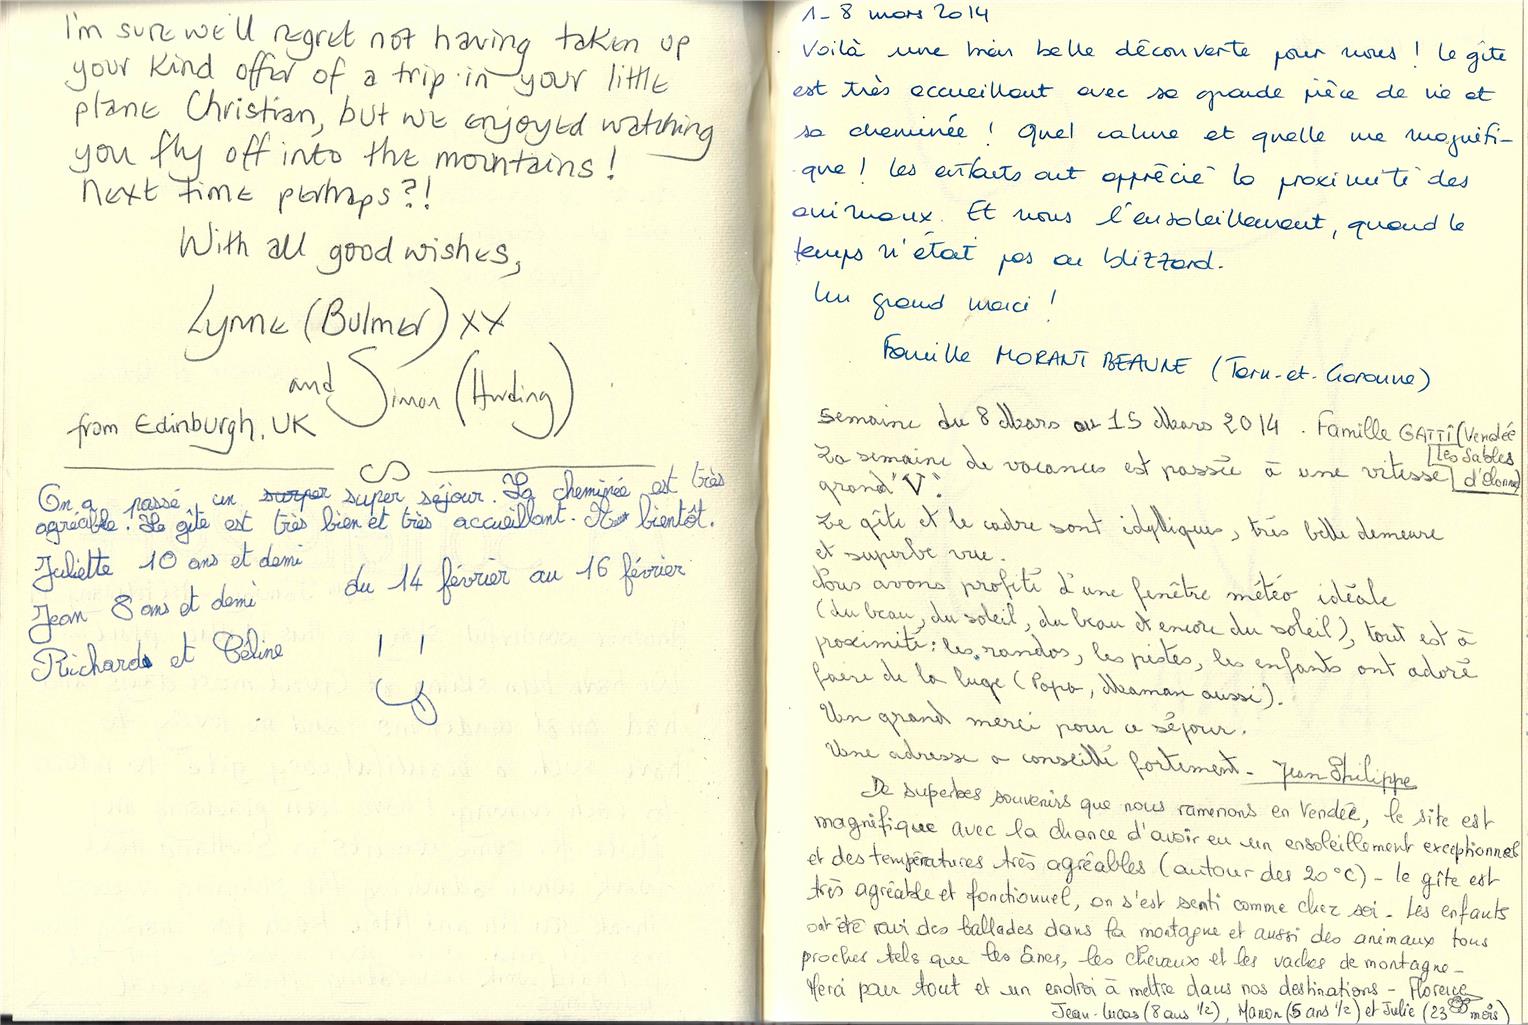 I'm sure we'll regret not having taken up
your kind offer of a trip in your little
plane Christian, but we enjoyed watching
you fly off into the mountains!
Next time perhaps?!
With all good wishes,
Lynne (Bulmer) xx
and Simon (Harding)
from Edinburgh, UK
On a passé un super séjour. La cheminée est très
agréable. Le gîte est très bien et très accueillant. A bientôt.
Juliette 10 ans et demi
du 14 février au 16 février
Jean 8 ans et demi
Richard et Céline
1-8 mars 2014
Voilà une bien belle découverte pour nous ! Le gîte
est très accueillant avec sa grande pièce de vie et
sa cheminée ! Quel calme et quelle vue magnifi-
que ! Les enfants ont apprécié la proximité des
animaux. Et nous l'ensoleillement, quand le
temps n'était pas au blizzard.
Un grand merci !
Famille MORANT BEAUNE (Tarn-et-Garonne)
Semaine du 8 Mars au 15 Mars 2014. Famille GATTÎ (Vendée
les Sables
d'Olonne)
La semaine de vacances est passée à une vitesse
grand "V".
Le gîte et le cadre sont idylliques, très belle demeure
et superbe vue.
Nous avons profité d'une fenêtre météo idéale
(du beau, du soleil, du beau et encore du soleil), tout est à
proximité : les randos, les pistes, les enfants ont adoré
faire de la luge (Papa, Maman aussi).
Un grand merci pour ce séjour.
Une adresse a conseillé fortement - Jean Philippe
De superbes souvenirs que nous ramenons en Vendée, le site est
magnifique avec la chance d'avoir eu un ensoleillement exceptionnel
et des températures très agréables (autour des 20°C) - le gîte est
très agréable et fonctionnel, on s'est senti comme chez soi - Les enfants
ont été ravi des ballades dans la montagne et aussi des animaux tous
proches tels que les ânes, les chevaux et les vaches de montagne -
Merci pour tout et un endroi à mettre dans nos destinations - Florence
Jean-Lucas (8 ans 1/2), Manon (5 ans 1/2) et Julie (23 mois)